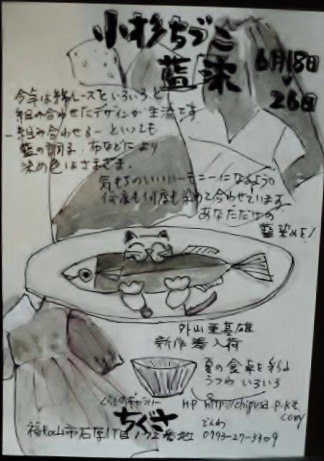 小杉ちづこ
藍染
6月18日
26日
今年は綿レースをいろいろと
組み合わせたデザインが主流です
組み合わせる といっても
藍の調子、布などにより
染め色はさまざま。
気持ちのいいハーモニーになるよう
何度も何度も染めて合わせています
あなただけの
藍染めを!
外山亜基雄
新作 着入荷
夏の食卓を彩る
うつわ いろいろ
くらしのギャラリー
ちぐさ
HP http://chigusa.p-kit.com/
でんわ
0773-27-3309
福知山市石原
番地